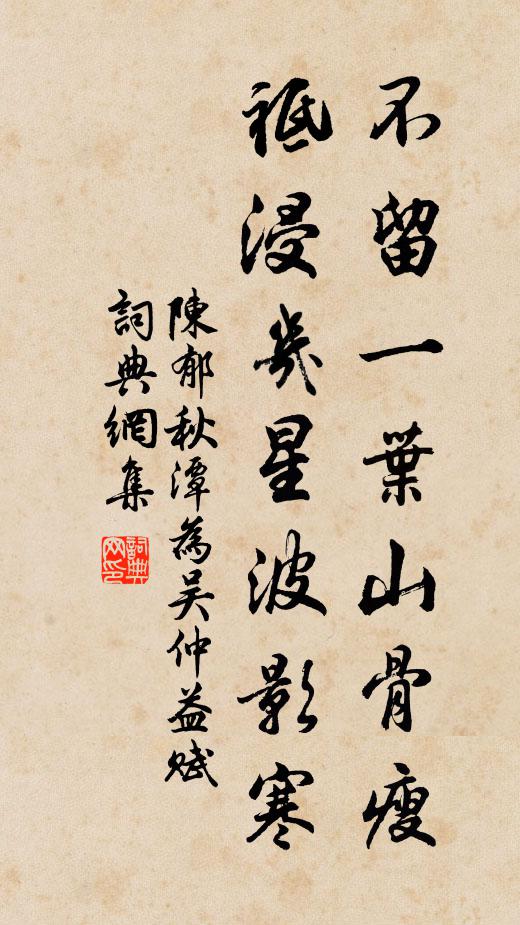 不留一葉山骨瘦
祗浸幾星波影寒
陳郁秋潭為吳仲益賦
詞典網集
詞典網印